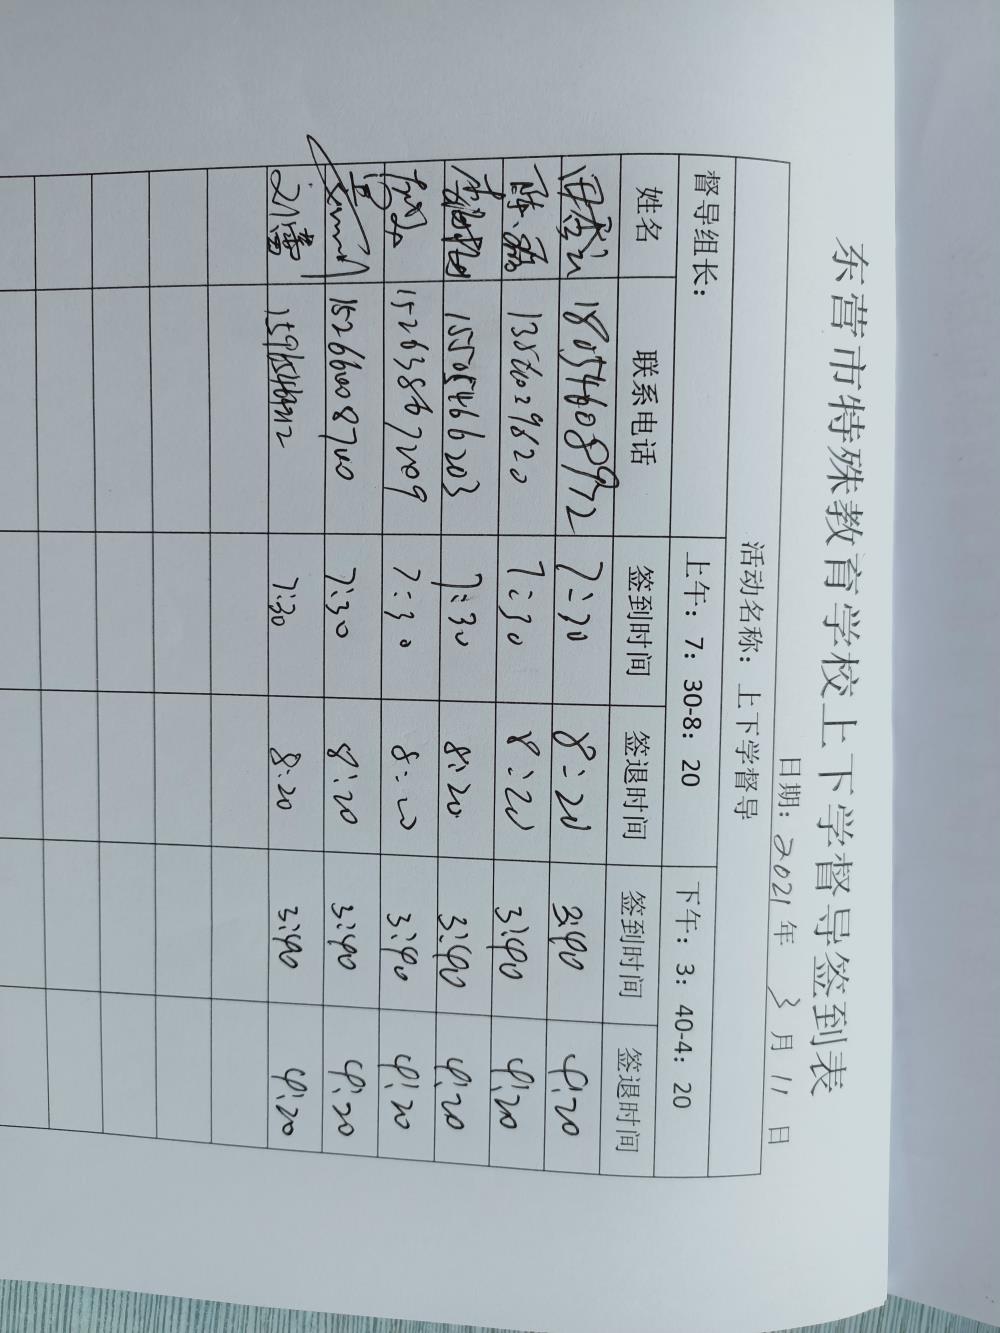 东营市特殊教育学校上下学督导签到表
日期：2021年 3月 11日
活动名称：上下学督导
督导组长： 上午：7：30-8：20 下午：3：40-4：20
姓名 联系电话 签到时间 签退时间 签到时间 签退时间
18054608972 7:30 8:20 3:40 4:20
7:30 8:20 3:40 4:20
15505466203 7:30 8:20 3:40 4:20
15263867209 7:30 8:20 3:40 4:20
15266008700 7:30 8:20 3:40 4:20
7:30 8:20 3:40 4:20